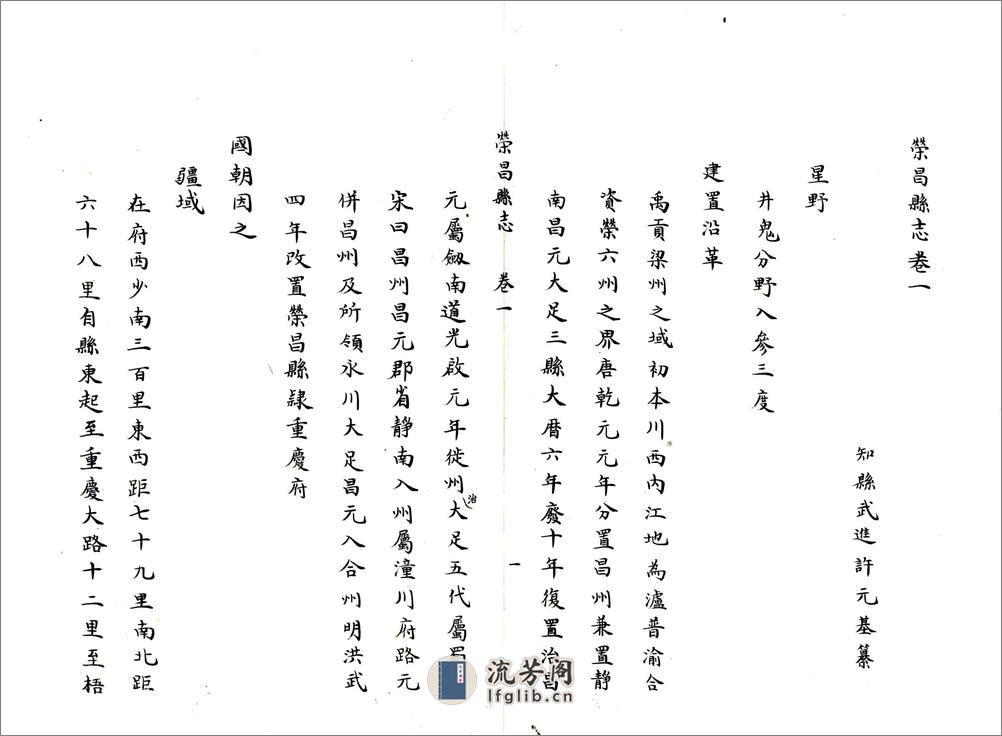 榮昌縣志卷一
知縣武進許元基纂
星野
井鬼分野入參三度
建置沿革
禹貢梁州之域初本川西內江地為瀘普渝合
資榮六州之界唐乾元元年分置昌州兼置靜
南昌元大足三縣大曆六年廢十年復置治昌
榮昌縣志 卷一 一
元屬劔南道光啟元年徙州治大足五代屬蜀
宋曰昌州昌元郡省靜南入州屬潼川府路元
併昌州及所領永川大足昌元入合州明洪武
四年改置榮昌縣隸重慶府
國朝因之
疆域
在府西少南三百里東西距七十九里南北距
六十八里自縣東起至重慶大路十二里至梧
流芳阁
lfglib.cn